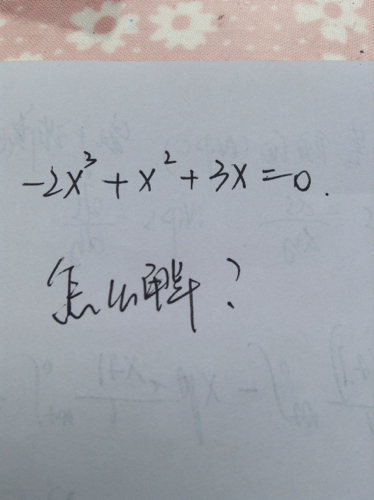 -2x³+x²+3x=0.
怎么解?